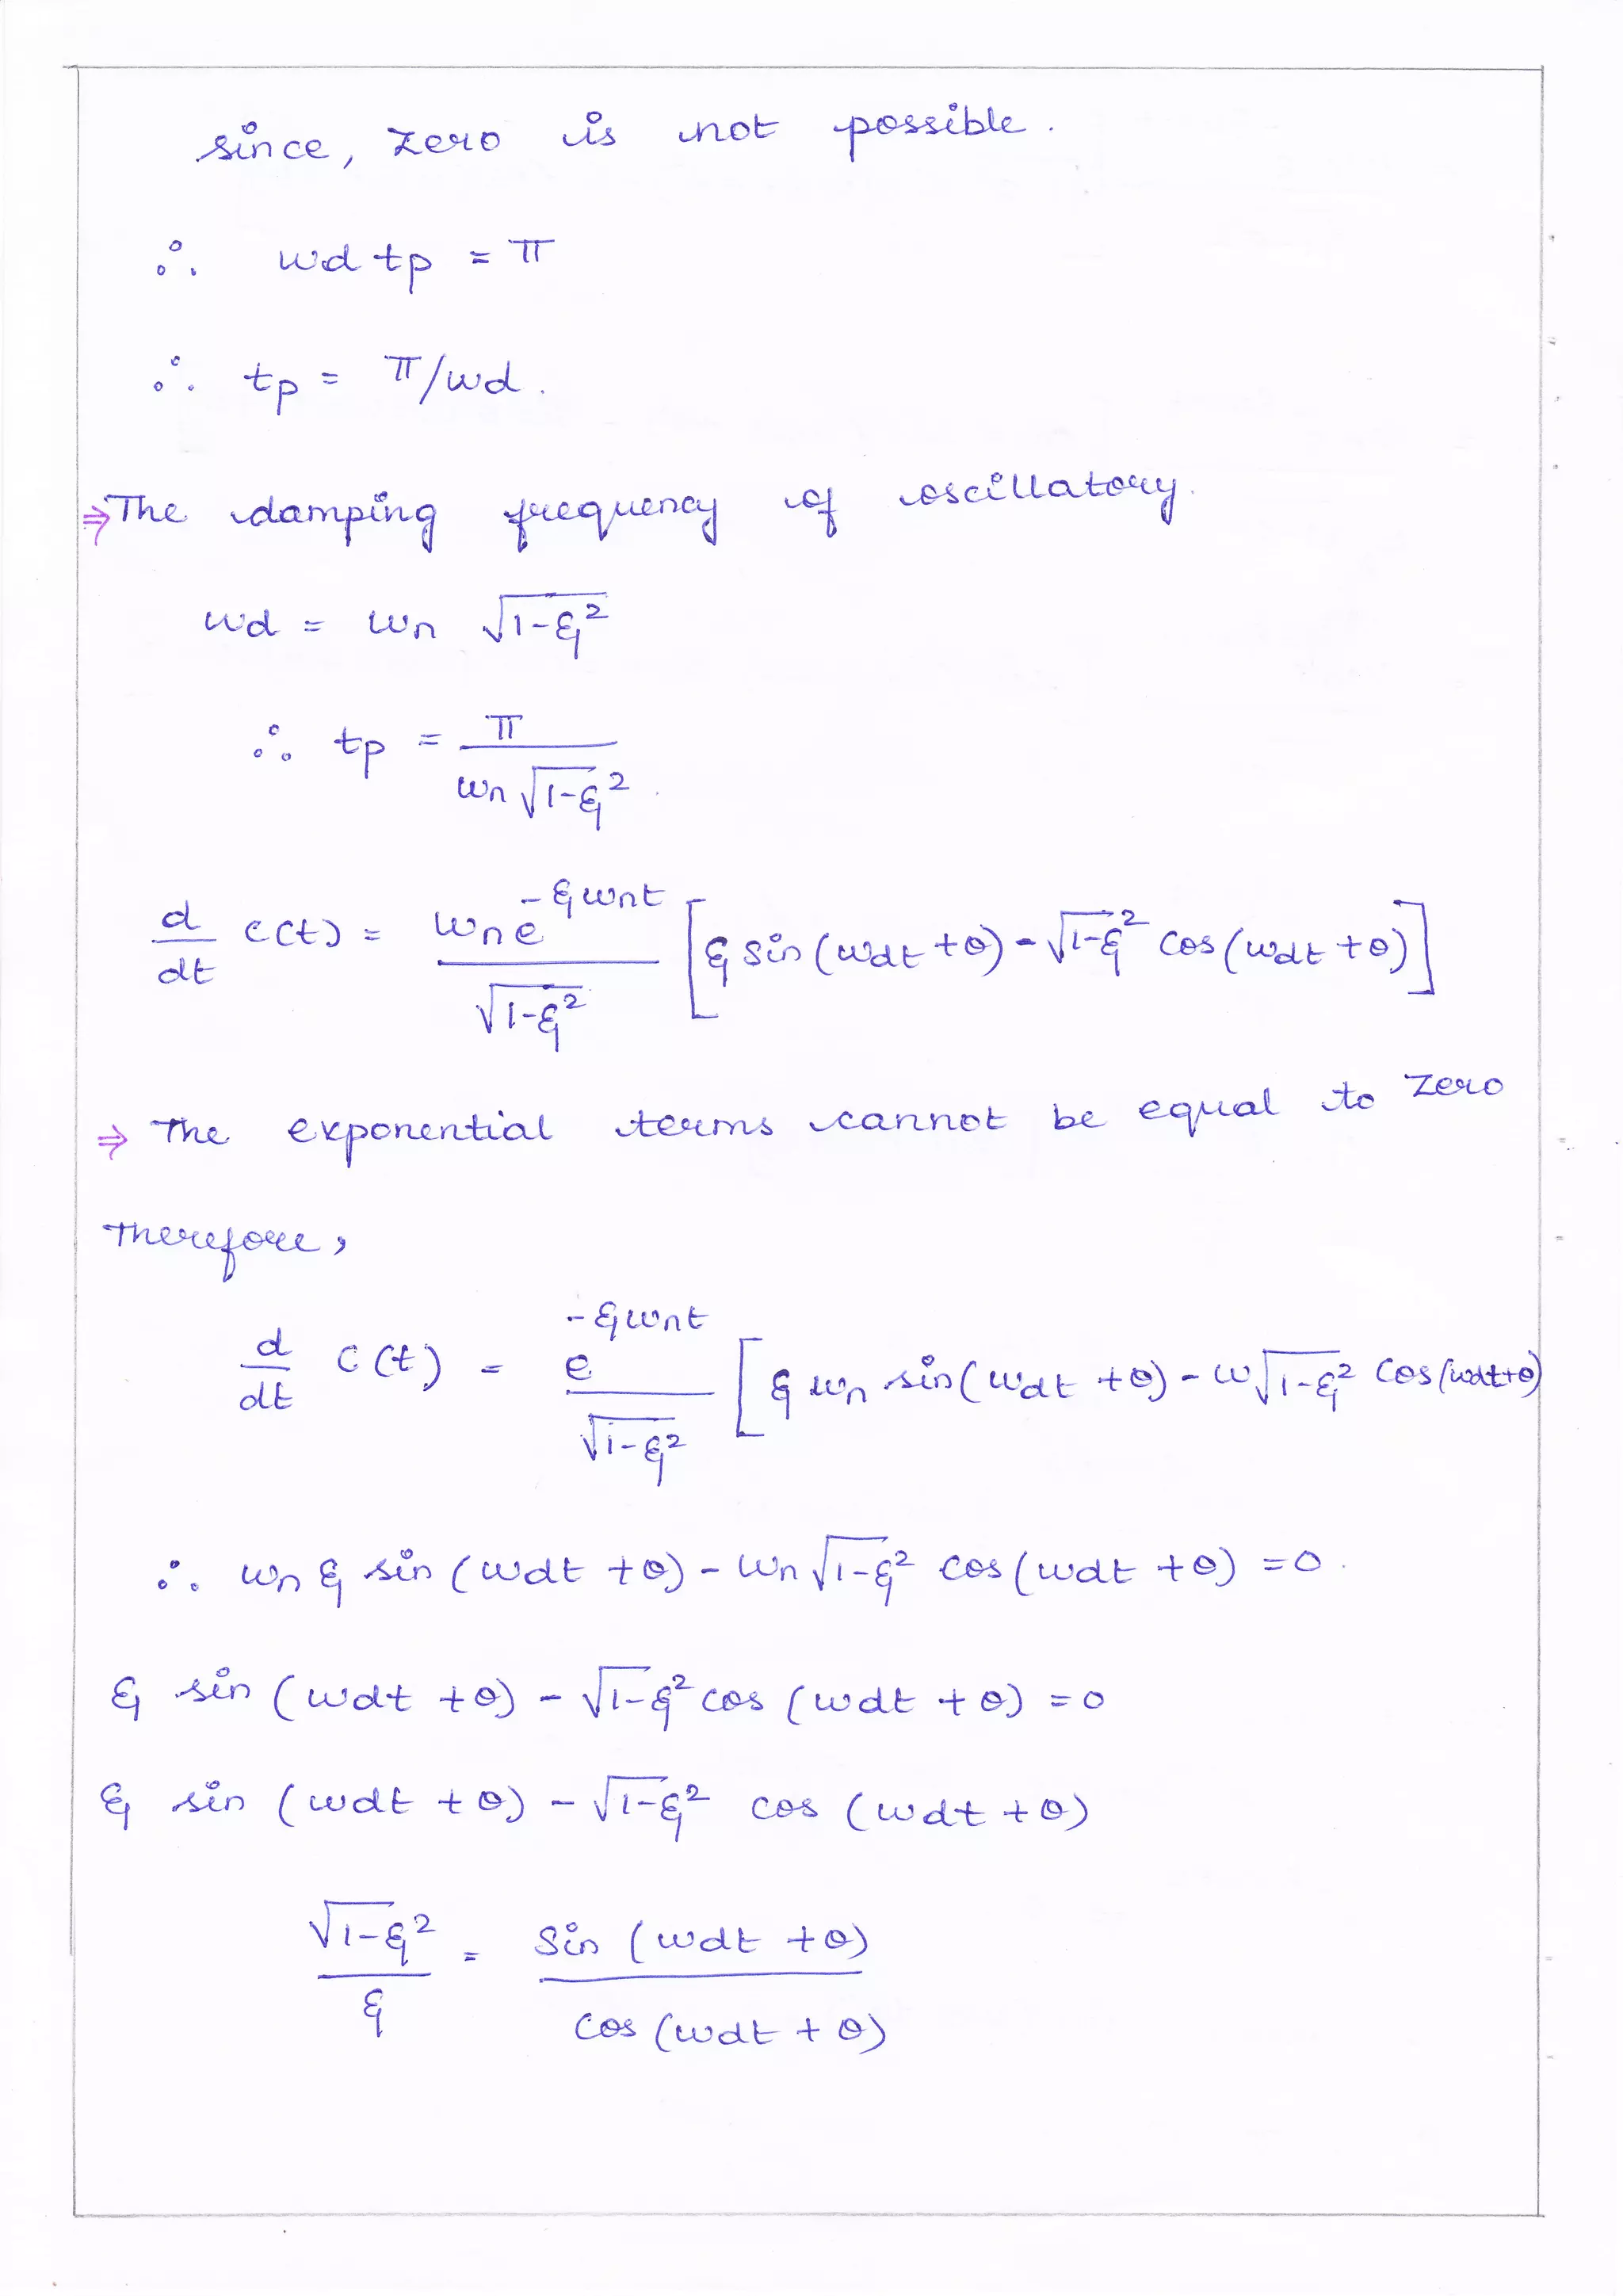 since, zero is not possible.
∴ wd tp = π
∴ tp = π/wd.
⇒ The damping frequency of oscillatory.
wd = wn √1-ξ²
∴ tp = π / wn √1-ξ².
d/dt c(t) = wn e^-ξwnt / √1-ξ² [ξ sin (wdt + θ) - √1-ξ² cos (wdt + θ)]
⇒ The exponential terms cannot be equal to zero
Therefore,
d/dt c(t) = e^-ξwnt / √1-ξ² [ξ wn sin (wdt + θ) - w√1-ξ² cos (wdt+θ)
∴ wn ξ sin (wdt + θ) - wn √1-ξ² cos (wdt + θ) = 0.
ξ sin (wdt + θ) - √1-ξ² cos (wdt + θ) = 0
ξ sin (wdt + θ) - √1-ξ² cos (wdt + θ)
√1-ξ² / ξ = Sin (wdt + θ) / Cos (wdt + θ)